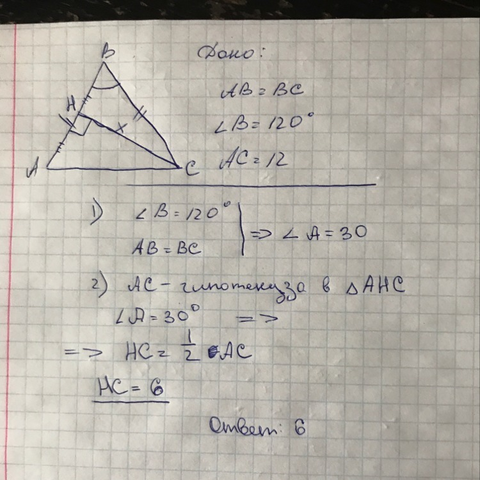 Дано:
B
AB = BC
H
∠B = 120°
x
A
C
AC = 12
1) ∠B = 120°
AB = BC
=> ∠A = 30
2) AC - гипотенуза в △AHC
∠A = 30° =>
=> HC = 1/2 • AC
HC = 6
Ответ: 6